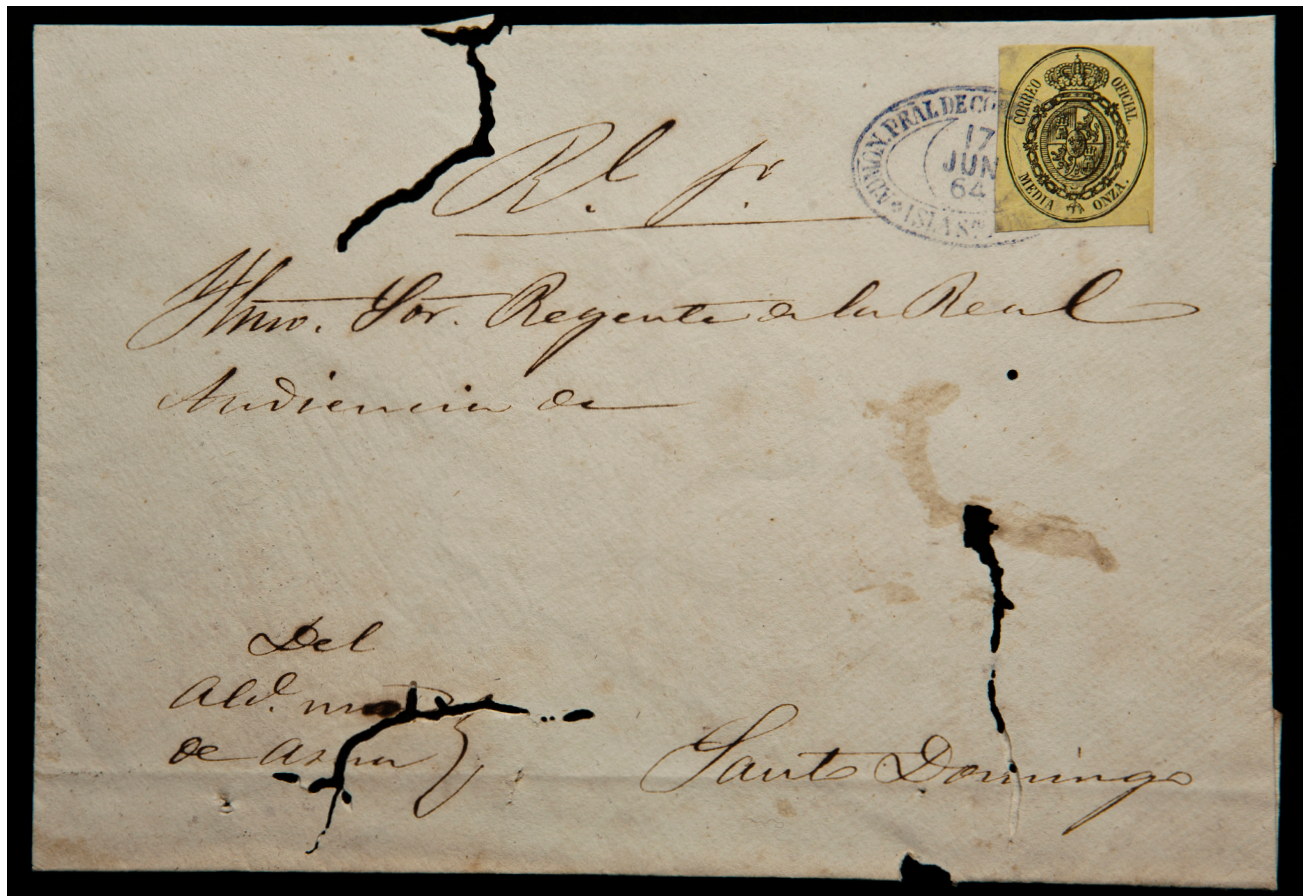 CORREO OFICIAL
MEDIA ONZA.
PRAL DE CO
17
JUN
64
ISLAS
Rl. s.
Yltmo. Sor. Regente de la Real
Audiencia de
Del
Alde. 
de Azua
Santo Domingo